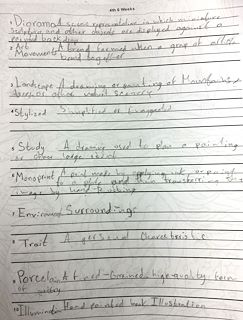 4th 6 Weeks
1 Diorama A scenic representation in which miniature
sculpture and other objects are displayed against a
painted backdrop
2 Art A bond formed when a group of artists
Movements band together
3 Landscape A drawing or painting of Mountains,
trees, or other natural scenery
4 Stylized Simplified or
5 Study A drawing used to plan a painting
or other large
6 Monoprint A print made by applying ink or paint
to a plate and then transferring the
image by hand-Rubbing
7 Environment Surroundings
8 Trait A personal characteristic
9 Porcelain A fined-Grained, high-quality form
of
10 Illumination Hand painted book Illustration